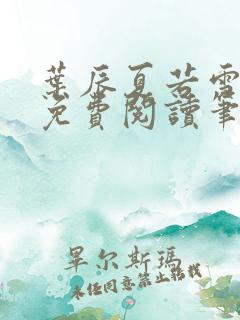 葉辰夏若雪
免費閱讀筆
畢尔斯瑪
未经同意禁止转载